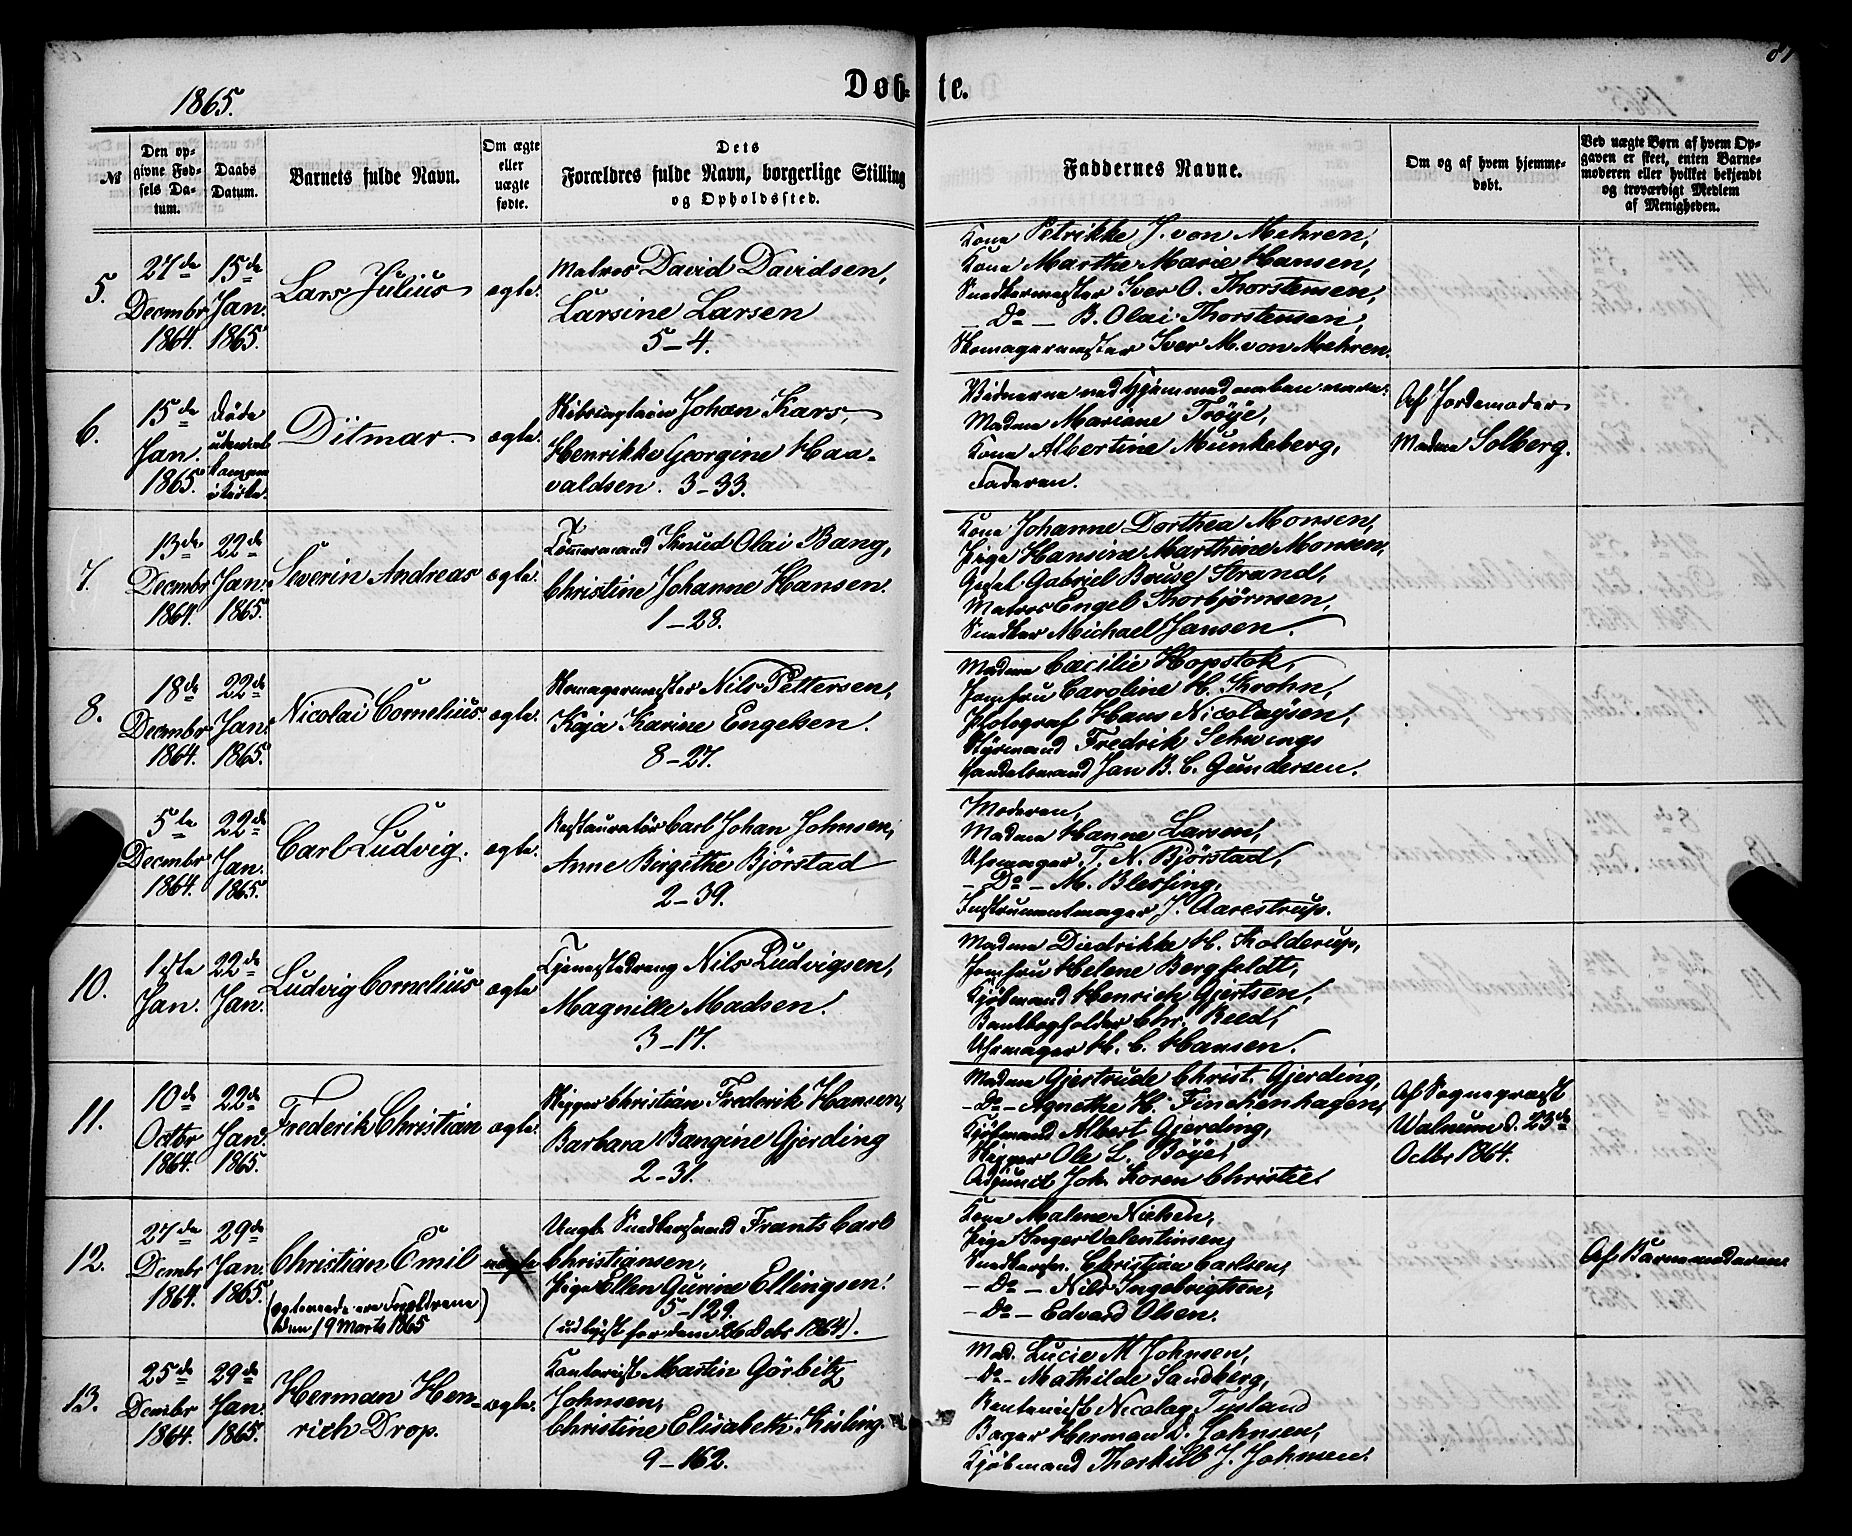 87
1865.
Døb- te.
№
Den op-
givne Fød-
sels Da-
tum.
Daabs
Datum.
Barnets fulde Navn.
Om ægte
eller
uægte
fødte.
Dets
Forældres fulde Navn, borgerlige Stilling
og Opholdssted.
Faddernes Navne.
Om og af hvem hjemme-
døbt.
Ved uægte Børn af hvem Op-
gaven er skeet, enten Barne-
moderen eller hvilket bekjendt
og troværdigt Medlem
af Menigheden.
5.
27de
Decmbr
1864.
15de
Jan.
1865.
Lars Julius
ægte.
Matros David Davidsen,
Larsine Larsen
5-4.
Kone Petrikke J. von Mehren,
Kone Marthe Marie Hansen,
Snedkermester Iver O. Thorstensen,
- Do - B. Olai Thorstensen,
Skomagermester Iver M. von Mehren.
6.
15de
Jan.
1865.
Døde
Ditmar.
ægte.
Johan Kars,
Henrikke Georgine Haa-
valdsen. 3-33.
Vidnerne ved Hjemmedaaben vare:
Madme Mariane Trøye,
Kone Albertine Munkeberg,
Faderen.
Af Jordemoder
Madme Solberg.
7.
13de
Decmbr
1864.
22de
Jan.
1865.
Severin Andreas
ægte.
Tømmermand Knud Olai Bang,
Christine Johanne Hansen.
1-28.
Kone Johanne Dorthea Monsen,
Pige Hansine Marthine Monsen,
Gesel Gabriel Bruse Strand,
Matros Engel Thorbjørnsen,
Snedker Michael Jansen.
8.
18de
Decmbr
1864.
22de
Jan.
1865.
Nicolai Cornelius.
ægte.
Skomagermester Nils Pettersen,
Kaja Karine Engelsen.
8-27.
Madme Cæcilie Hopstok,
Jomfru Caroline H. Krohn,
Photograf Hans Nicolaysen,
Styrmand Fredrik Schwings
Handelsmand Jan B. C. Gundersen.
5te
Decmbr
1864.
22de
Jan.
1865.
Carl Ludvig.
ægte.
Restauratør Carl Johan Johnsen,
Anne Birgithe Bjørstad
2-39.
Moderen,
Madme Hanne Larsen,
Uhrmager T. N. Bjørstad,
- Do - M. Blessing,
Instrumentmager J. Aarestrup.
10.
1ste
Jan.
22de
Jan.
Ludvig Cornelius
ægte
Tjenestedreng Nils Ludvigsen,
Magnille Madsen.
3-17.
Madme Diedrikke H. Kolderup,
Jomfru Helene Bergfeldt,
Kjøbmand Henrich Gjertsen,
Bankbogholder Chr. Reed,
Uhrmager H. C. Hansen.
11.
10de
Octbr
1864.
22de
Jan.
1865.
Frederik Christian
ægte.
Skipper Christian Frederik Hansen,
Barbara Bangine Gjerding
2-31.
Madme Gjertrude Christ. Gjerding,
- Do - Agnethe H. Finckenhagen,
Kjøbmand Albert Gjerding,
Skipper Ole L. Bøye,
Adjunct Joh. Koren Christie.
Af Sognepræst
Walnum d. 23de
Octbr 1864.
12.
27de
Decmbr
1864.
29de
Jan.
1865.
Christian Emil
(ægteviede ere Forældrene
den 19 Marts 1865)
uægte
Ungk. Snedkersvend Frants Carl
Christiansen,
Pige Ellen Gurine Ellingsen.
5-129.
(udlyst for dem 26 Dcbr 1864).
Kone Malene Nielsen,
Pige Inger Valentinsen,
Snedkersv. Christian Carlsen,
- Do - Nils Ingebrigtsen,
- Do - Edvard Olsen.
Af Barnemoderen
13.
25de
Decmbr
1864.
29de
Jan.
1865.
Herman Hen-
rich Drop.
ægte.
Kontorist Martin Görbitz
Johnsen,
Christine Elisabeth Kisling.
9-162.
Mad. Lucie M Johnsen,
- Do - Mathilde Sandberg,
Nicolay Tisland
Bager Herman D. Johnsen,
Kjøbmand Thorkild J. Johnsen.